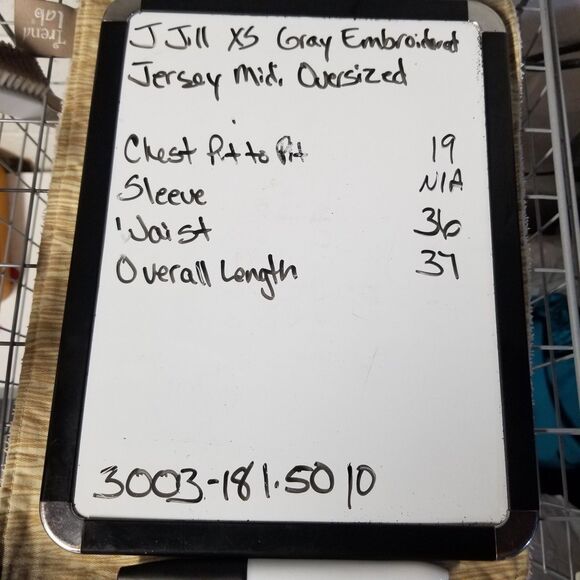 Trend
Lab
J Jill XS Gray Embroidered
Jersey Midi Oversized
Chest Pit to Pit 19
Sleeve N/A
Waist 36
Overall Length 37
3003-181.5010